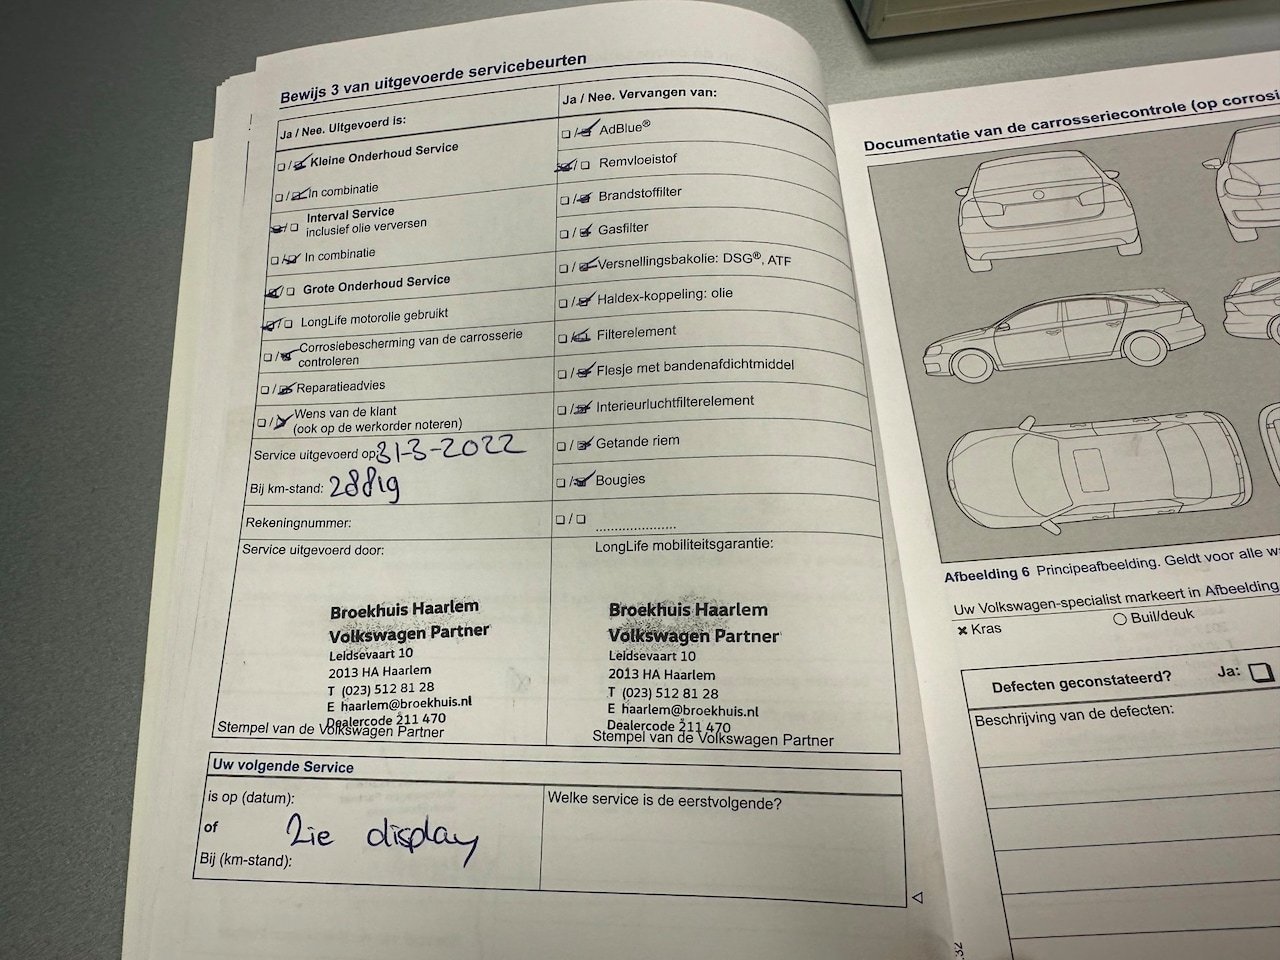 Bewijs 3 van uitgevoerde servicebeurten
Ja / Nee. Uitgevoerd is:
Kleine Onderhoud Service
In combinatie
Interval Service
inclusief olie verversen
In combinatie
Grote Onderhoud Service
LongLife motorolie gebruikt
Corrosiebescherming van de carrosserie
controleren
Reparatieadvies
Wens van de klant
(ook op de werkorder noteren)
Service uitgevoerd op: 31-3-2022
Bij km-stand: 28819
Rekeningnummer:
Service uitgevoerd door:
Broekhuis Haarlem
Volkswagen Partner
Leidsevaart 10
2013 HA Haarlem
T (023) 512 81 28
E haarlem@broekhuis.nl
Dealercode 211 470
Stempel van de Volkswagen Partner
Ja / Nee. Vervangen van:
AdBlue®
Remvloeistof
Brandstoffilter
Gasfilter
Versnellingsbakolie: DSG®, ATF
Haldex-koppeling: olie
Filterelement
Flesje met bandenafdichtmiddel
Interieurluchtfilterelement
Getande riem
Bougies
LongLife mobiliteitsgarantie:
Broekhuis Haarlem
Volkswagen Partner
Leidsevaart 10
2013 HA Haarlem
T (023) 512 81 28
E haarlem@broekhuis.nl
Dealercode 211 470
Stempel van de Volkswagen Partner
Uw volgende Service
is op (datum):
of
Zie display
Bij (km-stand):
Welke service is de eerstvolgende?
Documentatie van de carrosseriecontrole (op corrosi
Afbeelding 6 Principeafbeelding. Geldt voor alle w
Uw Volkswagen-specialist markeert in Afbeelding
× Kras
Buil/deuk
Defecten geconstateerd?
Ja:
Beschrijving van de defecten: